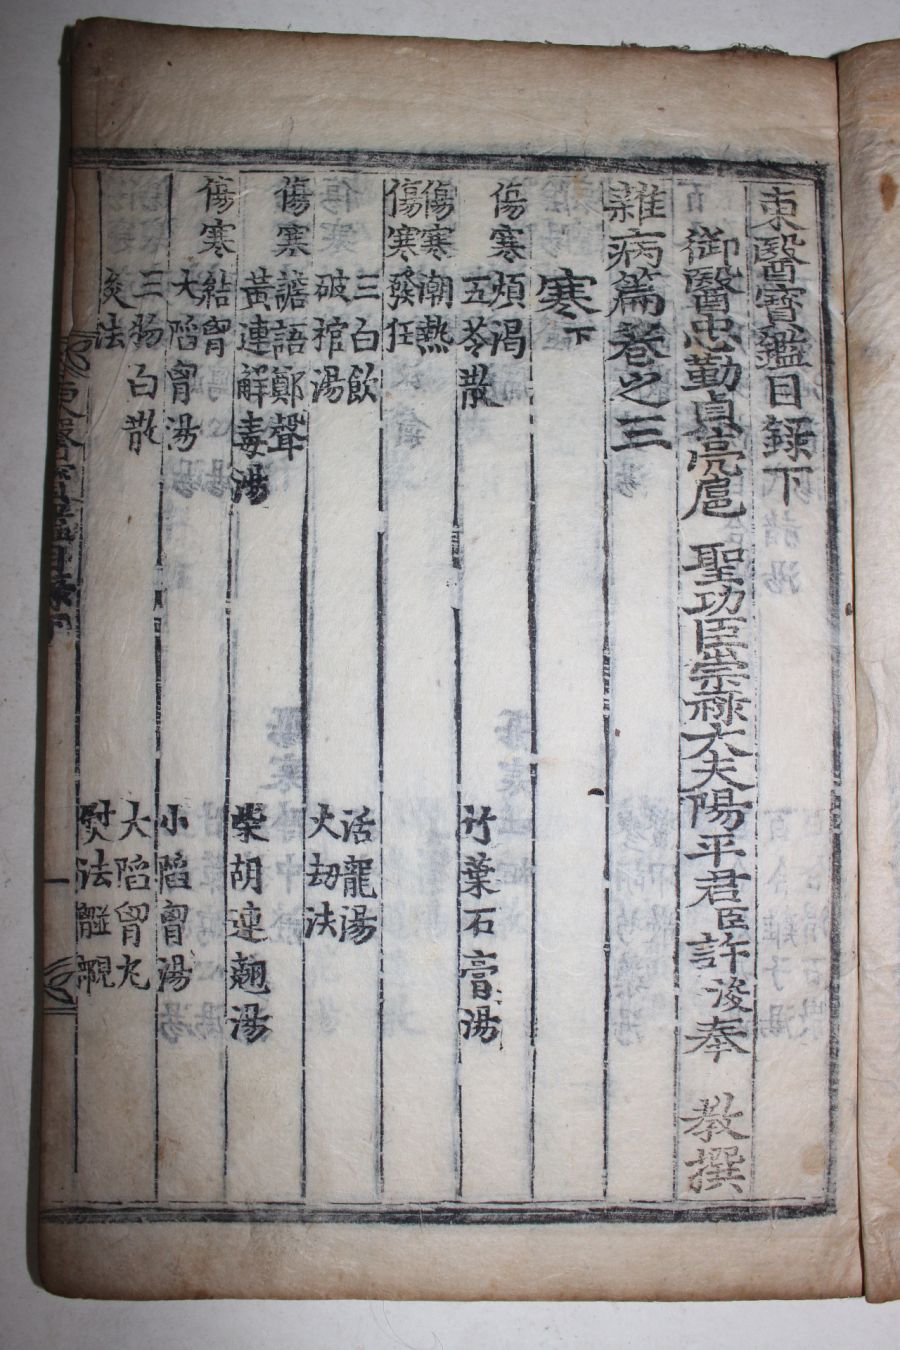 東醫寶鑑目録下
御醫忠勤貞亮扈 聖功臣崇祿大夫陽平君臣許浚奉 教撰
雜病篇卷之三
寒下
傷寒煩渴
五苓散 竹葉石膏湯
傷寒潮熱
傷寒發狂
三白飮 活龍湯
破棺湯 火劫法
傷寒譫語鄭聲
黃連解毒湯 柴胡連翹湯
傷寒結胷
大陷胷湯 小陷胷湯
三物白散 大陷胷丸
灸法 熨法
東醫寶鑑目録下
一